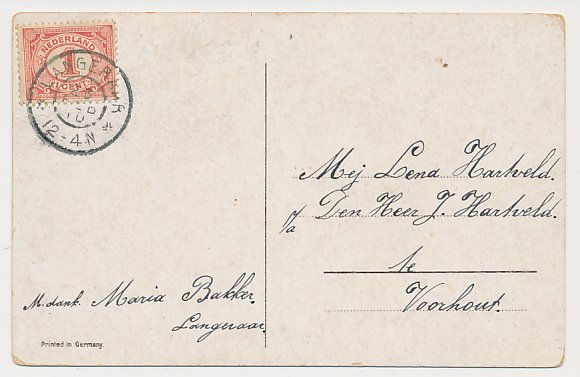 NEDERLAND
1
CENT
LANGERAAR
12-4N
Mej Lena Hartveld.
p/a Den Heer J. Hartveld.
te
Voorhout.
M. dank. Maria Bakker.
Langeraar.
Printed in Germany.